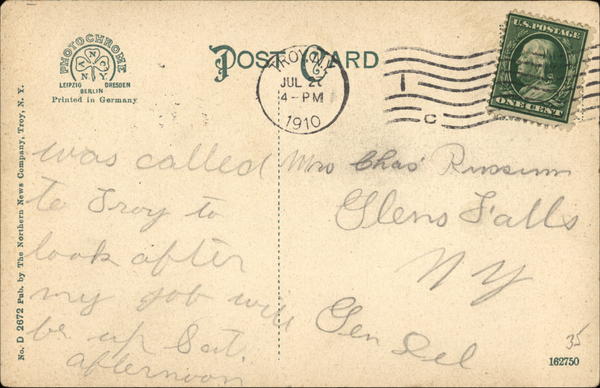 PHOTOCHROME
A N C
N Y
LEIPZIG DRESDEN
BERLIN
Printed in Germany
POST CARD
TROY, N.Y.
JUL 2
4 - PM
1910
1
C
U.S. POSTAGE
ONE CENT
No. D 2672 Pub. by The Northern News Company, Troy, N. Y.
was called
to Troy to
look after
my job will
be up Sat.
afternoon
Mrs Chas' Russum
Glens Falls
NY
Gen Del
35
162750